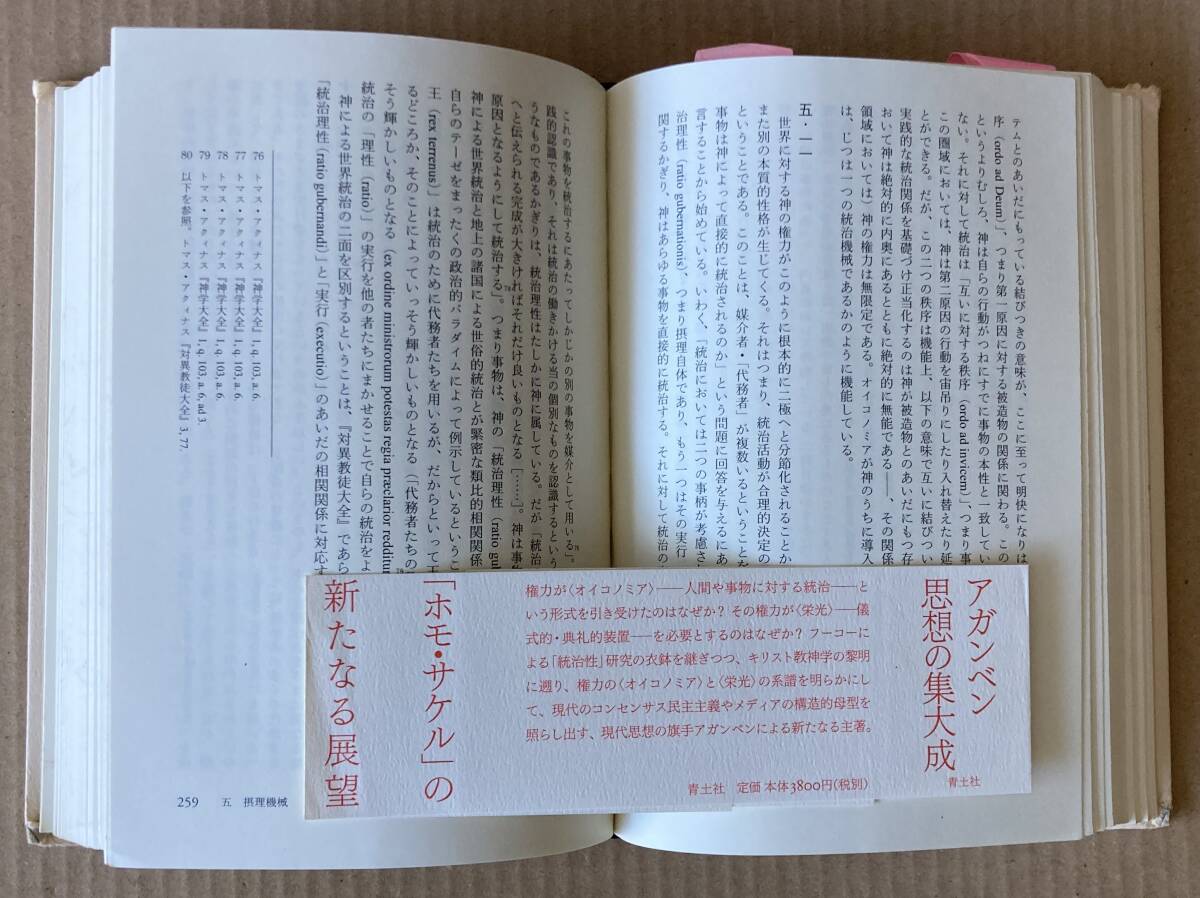 テムとのあいだにもっている結びつきの意味が、ここに至って明快になりは
序（ordo ad Deum）、つまり第一原因に対する被造物の関係に関わる。この
というよりむしろ、神は自らの行動がつねにすでに事物の本性と一致してい
ない。それに対して統治は「互いに対する秩序（ordo ad invicem）」、つまり事
この圏域においては、神は第二原因の行動を宙吊りにしたり入れ替えたり延
とができる。だが、この二つの秩序は機能上、以下の意味で互いに結びつい
実践的な統治関係を基礎づけ正当化するのは神が被造物とのあいだにもつ存
おいて神は絶対的に内奥にあるとともに絶対的に無能である――、その関係
領域においては）神の権力は無限定である。オイコノミアが神のうちに導入
は、じつは一つの統治機械であるかのように機能している。
五・一一
世界に対する神の権力がこのように根本的に二極へと分節化されることか
また別の本質的性格が生じてくる。それはつまり、統治活動が合理的決定の
ということである。このことは、媒介者・「代務者」が複数いるということを
事物は神によって直接的に統治されるのか」という問題に回答を与えるにあ
言することから始めている。いわく、「統治においては二つの事柄が考慮さ
治理性（ratio gubernationis）、つまり摂理自体であり、もう一つはその実行
関するかぎり、神はあらゆる事物を直接的に統治する。それに対して統治の
これの事物を統治するにあたってしかじかの別の事物を媒介として用いる」。76
践的認識であり、それは統治の働きかける当の個別なものを認識するという
うなものであるかぎりは、統治理性はたしかに神に属している。だが「統治
へと伝えられる完成が大きければそれだけ良いものとなる［……］。神は事物
原因となるようにして統治する」。78つまり事物は、神の「統治理性（ratio gub
神による世界統治と地上の諸国における世俗的統治とが緊密な類比的相関関係
自らのテーゼをまったくの政治的パラダイムによって例示しているというこ
王（rex terrenus）」は統治のために代務者たちを用いるが、だからといって王
るどころか、そのことによっていっそう輝かしいものとなる（「代務者たちの
そう輝かしいものとなる（ex ordine ministrorum potestas regia præclarior redditur
統治の「理性（ratio）」の実行を他の者たちにまかせることで自らの統治をよ
神による世界統治の二面を区別するということは、『対異教徒大全』であら
「統治理性（ratio gubernandi）」と「実行（executio）」のあいだの相関関係に対応す
76 トマス・アクィナス『神学大全』1, q. 103, a. 6.
77 トマス・アクィナス『神学大全』1, q. 103, a. 6.
78 トマス・アクィナス『神学大全』1, q. 103, a. 6.
79 トマス・アクィナス『神学大全』1, q. 103, a. 6, ad 3.
80 以下を参照。トマス・アクィナス『対異教徒大全』3, 77.
259 五 摂理機械
アガンベン
思想の集大成
権力が〈オイコノミア〉――人間や事物に対する統治――と
いう形式を引き受けたのはなぜか？ その権力が〈栄光〉――儀
式的・典礼的装置――を必要とするのはなぜか？ フーコーに
よる「統治性」研究の衣鉢を継ぎつつ、キリスト教神学の黎明
に遡り、権力の〈オイコノミア〉と〈栄光〉の系譜を明らかにし
て、現代のコンセンサス民主主義やメディアの構造的母型を
照らし出す、現代思想の旗手アガンベンによる新たなる主著。
青土社 定価 本体3800円（税別）
「ホモ・サケル」の
新たなる展望
青土社